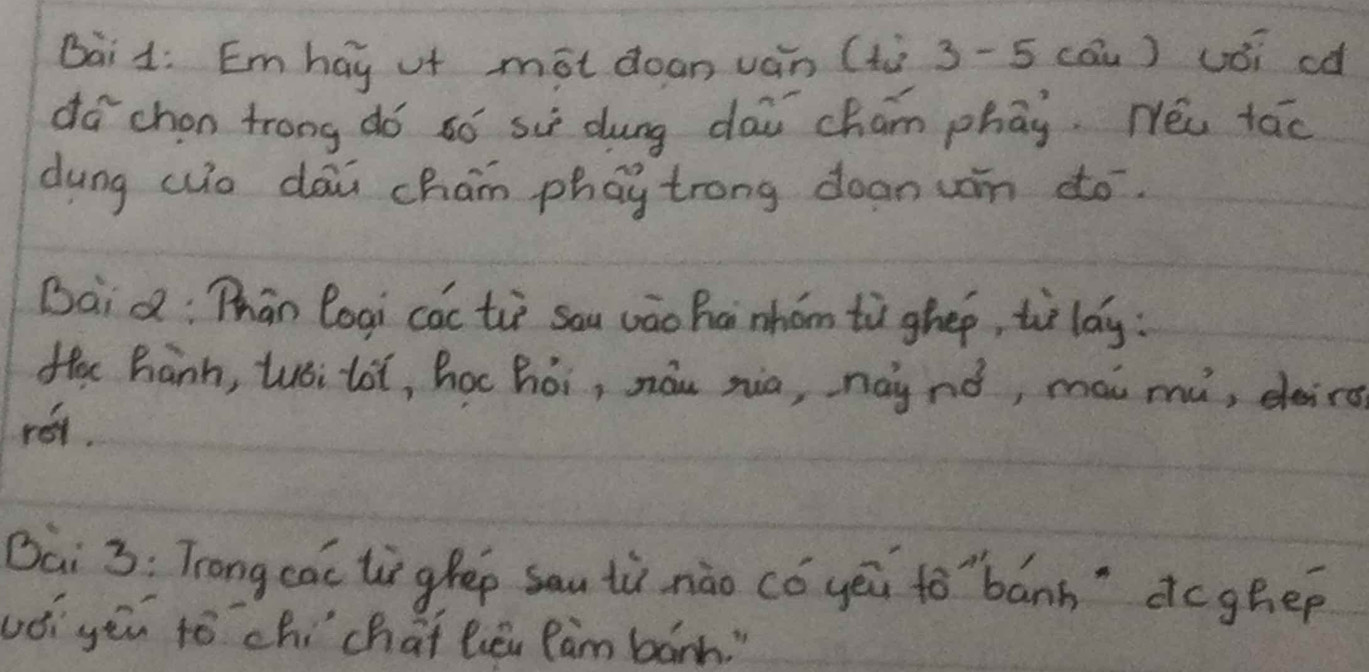 Bài 1: Em hãy vt một đoạn văn (từ 3-5 câu) với cđ
đã chọn trong đó có sử dụng dấu chấm phẩy. Nêu tác
dụng của dấu chấm phẩy trong đoạn văn đó.
Bài 2: Phân loại các từ sau vào hai nhóm từ ghép, từ láy:
Học hành, tươi tốt, học hỏi, râu ria, nảy nở, máu mủ,
rối.
Bài 3: Trong các từ ghép sau từ nào có yếu tố "bánh" đc ghép
với yếu tố chỉ chất liệu làm bánh."